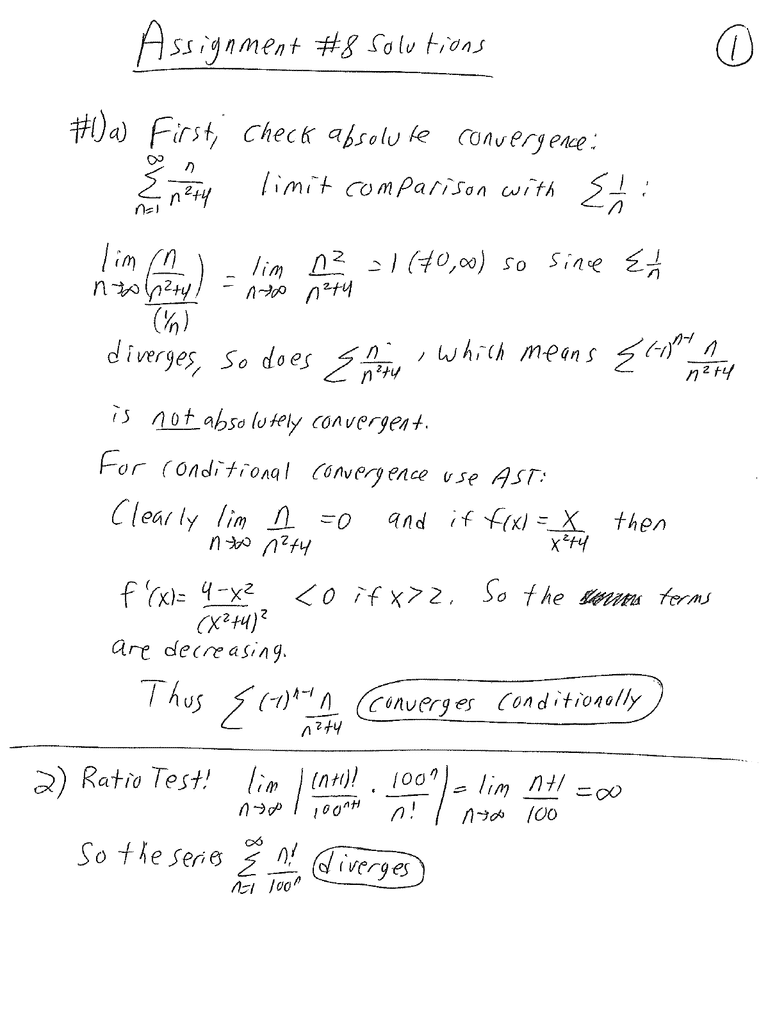 Assignment #8 Solutions
①
#1)a) First, check absolute convergence:
∑_{n=1}^{∞} n/(n²+4) limit comparison with ∑ 1/n :
lim_{n→∞} (n/(n²+4))/(1/n) = lim_{n→∞} n²/(n²+4) = 1 (≠0,∞) so since ∑ 1/n
diverges, so does ∑ n/(n²+4), which means ∑ (-1)^{n-1} n/(n²+4)
is not absolutely convergent.
For conditional convergence use AST:
Clearly lim_{n→∞} n/(n²+4) = 0 and if f(x) = x/(x²+4) then
f'(x) = (4-x²)/(x²+4)² < 0 if x>2. So the terms
are decreasing.
Thus ∑ (-1)^{n-1} n/(n²+4) converges conditionally
2) Ratio Test! lim_{n→∞} |(n+1)!/100^{n+1} · 100^n/n!| = lim_{n→∞} (n+1)/100 = ∞
So the series ∑_{n=1}^{∞} n!/100^n diverges